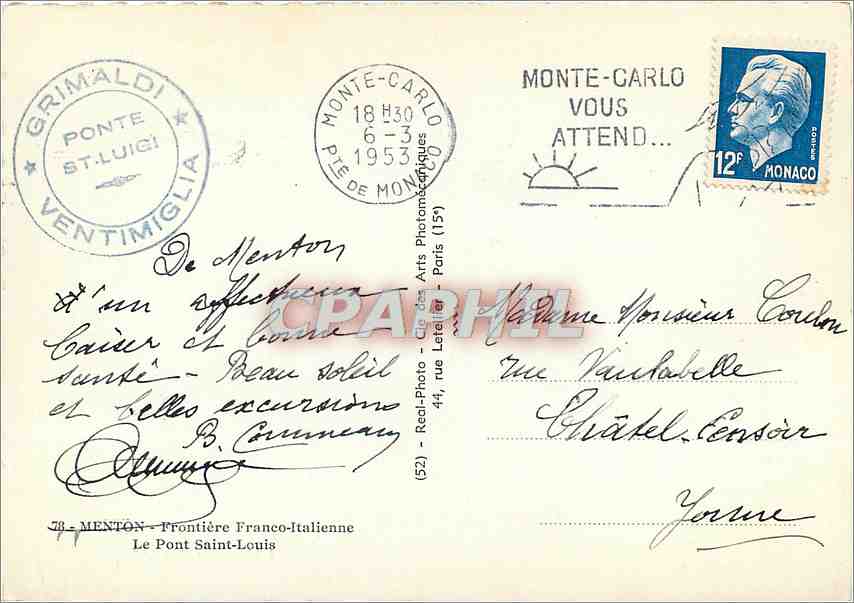 GRIMALDI
PONTE
ST. LUIGI
VENTIMIGLIA
MONTE-CARLO
18 H30
6-3
1953
Pté DE MONACO
MONTE-CARLO
VOUS
ATTEND...
POSTES
12F MONACO
De Menton
d'un affectueux
baiser et bonne
santé - Beau soleil
et belles excursions
B. Commeau
78 - MENTON - Frontière Franco-Italienne
Le Pont Saint-Louis
(52) - Real-Photo - Cie des Arts Photomécaniques
44, rue Letellier - Paris (15e)
CPARHIL
Madame Monsieur Coulon
rue Vaulabelle
Châtel-Censoir
Yonne